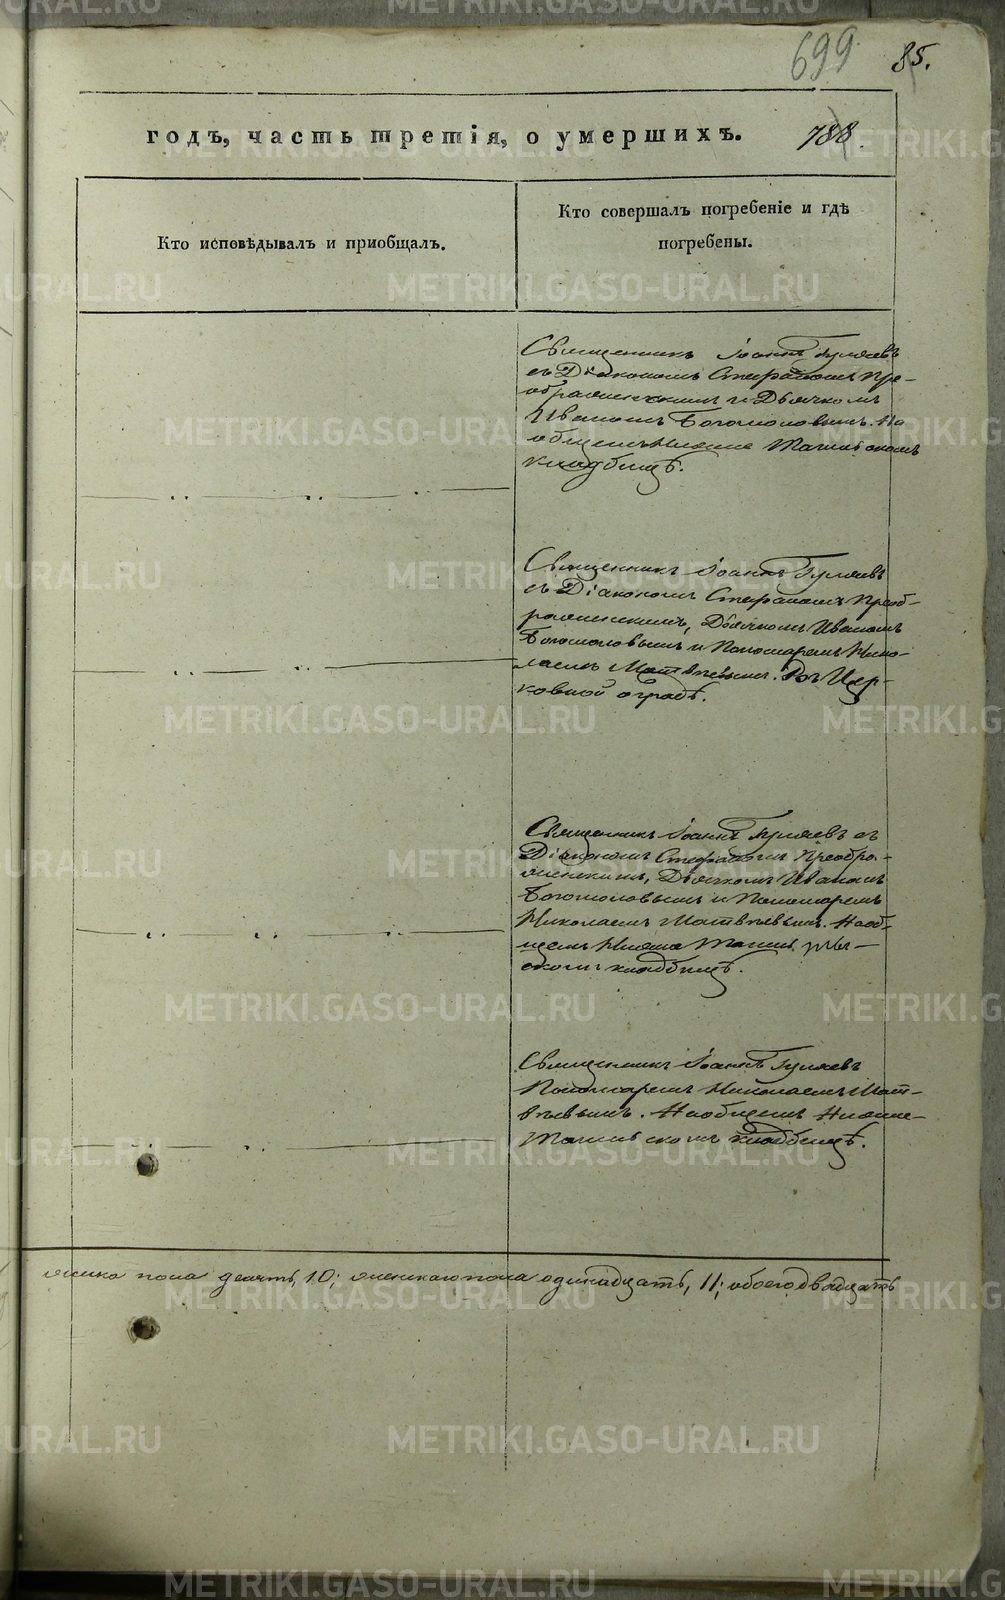 699 85.
годъ, часть третія, о умершихъ. 788.
Кто исповѣдывалъ и приобщалъ.
Кто совершалъ погребеніе и гдѣ
погребены.
Священникъ Іоаннъ Гуляевъ
съ Діакономъ Стефаномъ Пре-
ображенскимъ и Дьячкомъ
Иваномъ Богомоловымъ. На
общемъ Нижне Тагильскомъ
кладбищѣ.
Священникъ Іоаннъ Гуляевъ
съ Діакономъ Стефаномъ Преоб-
раженскимъ, Дьячкомъ Иваномъ
Богомоловымъ и Пономаремъ Нико-
лаемъ Матвѣевымъ. Въ Цер-
ковной оградѣ.
Священникъ Іоаннъ Гуляевъ съ
Діакономъ Стефаномъ Преобра-
женскимъ, Дьячкомъ Иваномъ
Богомоловымъ и Пономаремъ
Николаемъ Матвѣевымъ. На об-
щемъ Нижне
скомъ кладбищѣ.
Священникъ Іоаннъ Гуляевъ
Пономаремъ Николаемъ Мат-
вѣевымъ. На общемъ Нижне-
Тагильскомъ кладбищѣ.
пола десять, 10; женскаго пола одинадцать, 11; обоего двадцать
METRIKI.GASO-URAL.RU